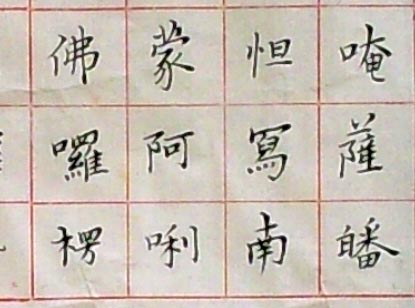 唵薩皤
怛寫南
蒙阿唎
佛囉楞